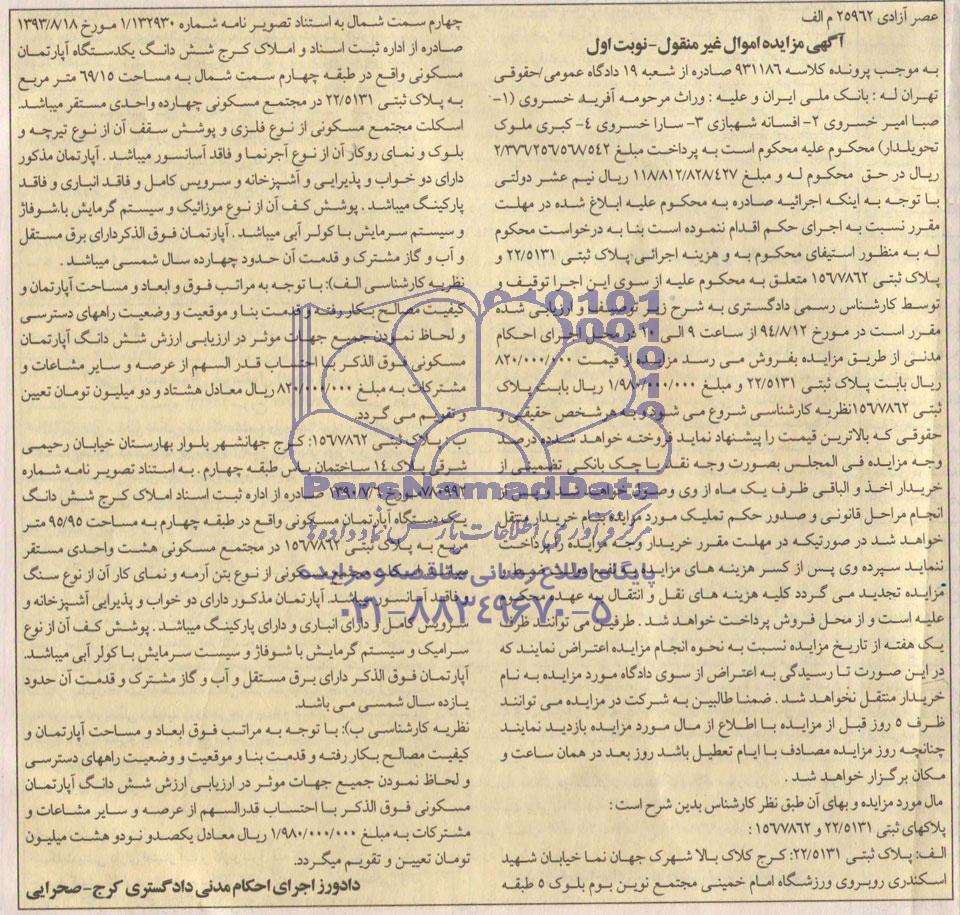 عصر آزادی ۲۵۹۶۲ م الف
آگهی مزایده اموال غیر منقول - نوبت اول
به موجب پرونده کلاسه ۹۳۱۱۸۶ صادره از شعبه ۱۹ دادگاه عمومی/حقوقی
تهران له : بانک ملی ایران و علیه : وراث مرحومه آفرید خسروی (۱-
صبا امیر خسروی ۲- افسانه شهبازی ۳- سارا خسروی ۴- کبری ملوک
تحویلدار) محکوم علیه محکوم است به پرداخت مبلغ ۲/۳۷۶/۲۵۶/۵۶۸/۵۴۲
ریال در حق محکوم له و مبلغ ۱۱۸/۸۱۲/۸۲۸/۴۲۷ ریال نیم عشر دولتی
با توجه به اینکه اجرائیه صادره به محکوم علیه ابلاغ شده در مهلت
مقرر نسبت به اجرای حکم اقدام ننموده است بنا به درخواست محکوم
له به منظور استیفای محکوم به و هزینه اجرائی پلاک ثبتی ۲۲/۵۱۳۱ و
پلاک ثبتی ۱۵۶/۷۸۶۲ متعلق به محکوم علیه از سوی این اجرا توقیف و
توسط کارشناس رسمی دادگستری به شرح زیر توصیف و ارزیابی شده
مقرر است در مورخ ۹۴/۸/۱۲ از ساعت ۹ الی ۱۰ در محل اجرای احکام
مدنی از طریق مزایده بفروش می رسد مزایده از قیمت ۸۲۰/۰۰۰/۰۰۰
ریال بابت پلاک ثبتی ۲۲/۵۱۳۱ و مبلغ ۱/۹۸۰/۰۰۰/۰۰۰ ریال بابت پلاک
ثبتی ۱۵۶/۷۸۶۲نظریه کارشناسی شروع می شود و به هر شخص حقیقی و
حقوقی که بالاترین قیمت را پیشنهاد نماید فروخته خواهد شد ده درصد
وجه مزایده فی المجلس بصورت وجه نقد یا چک بانکی تضمینی از
خریدار اخذ و الباقی ظرف یک ماه از وی وصول خواهد شد و پس از
انجام مراحل قانونی و صدور حکم تملیک مورد مزایده بنام خریدار منتقل
خواهد شد در صورتیکه در مهلت مقرر خریدار وجه مزایده را پرداخت
ننماید سپرده وی پس از کسر هزینه های مزایده به نفع دولت ضبط و
مزایده تجدید می گردد کلیه هزینه های نقل و انتقال به عهده محکوم
علیه است و از محل فروش پرداخت خواهد شد . طرفین می توانند ظرف
یک هفته از تاریخ مزایده نسبت به نحوه انجام مزایده اعتراض نمایند که
در این صورت تا رسیدگی به اعتراض از سوی دادگاه مورد مزایده به نام
خریدار منتقل نخواهد شد . ضمنا طالبین به شرکت در مزایده می توانند
ظرف ۵ روز قبل از مزایده با اطلاع از مال مورد مزایده بازدید نمایند
چنانچه روز مزایده مصادف با ایام تعطیل باشد روز بعد در همان ساعت و
مکان برگزار خواهد شد .
مال مورد مزایده و بهای آن طبق نظر کارشناس بدین شرح است :
پلاکهای ثبتی ۲۲/۵۱۳۱ و ۱۵۶/۷۸۶۲ :
الف: پلاک ثبتی ۲۲/۵۱۳۱: کرج کلاک بالا شهرک جهان نما خیابان شهید
اسکندری روبروی ورزشگاه امام خمینی مجتمع نوین بوم بلوک ۵ طبقه
چهارم سمت شمال به استناد تصویر نامه شماره ۱/۱۳۲۹۳۰ مورخ ۱۳۹۳/۸/۱۸
صادره از اداره ثبت اسناد و املاک کرج شش دانگ یکدستگاه آپارتمان
مسکونی واقع در طبقه چهارم سمت شمال به مساحت ۶۹/۱۵ متر مربع
به پلاک ثبتی ۲۲/۵۱۳۱ در مجتمع مسکونی چهارده واحدی مستقر میباشد.
اسکلت مجتمع مسکونی از نوع فلزی و پوشش سقف آن از نوع تیرچه و
بلوک و نمای روکار آن از نوع آجرنما و فاقد آسانسور میباشد . آپارتمان مذکور
دارای دو خواب و پذیرایی و آشپزخانه و سرویس کامل و فاقد انباری و فاقد
پارکینگ میباشد . پوشش کف آن از نوع موزائیک و سیستم گرمایش با،شوفاژ
و سیستم سرمایش با کولر آبی میباشد . آپارتمان فوق الذکر دارای برق مستقل
و آب و گاز مشترک و قدمت آن حدود چهارده سال شمسی میباشد .
نظریه کارشناسی الف): با توجه به مراتب فوق و ابعاد و مساحت آپارتمان و
کیفیت مصالح بکار رفته و قدمت بنا و موقعیت و وضعیت راههای دسترسی
و لحاظ نمودن جمیع جهات موثر در ارزیابی ارزش شش دانگ آپارتمان
مسکونی فوق الذکر با احتساب قدر السهم از عرصه و سایر مشاعات و
مشترکات به مبلغ ۸۲۰/۰۰۰/۰۰۰ ریال معادل هشتاد و دو میلیون تومان تعیین
و تقویم می گردد.
ب: پلاک ثبتی ۱۵۶/۷۸۶۲: کرج جهانشهر بلوار بهارستان خیابان رحیمی
شرقی پلاک ۱۴ ساختمان یاس طبقه چهارم . به استناد تصویر نامه شماره
۷/۸۰۹۹۲ مورخ ۱۳۹۰/۷/۶ صادره از اداره ثبت اسناد املاک کرج شش دانگ
یک دستگاه آپارتمان مسکونی واقع در طبقه چهارم به مساحت ۹۵/۹۵ متر
مربع به پلاک ثبتی ۱۵۶/۷۸۶۲ در مجتمع مسکونی هشت واحدی مستقر
میباشد. اسکلت مجتمع مسکونی از نوع بتن آرمه و نمای کار آن از نوع سنگ
و فاقد آسانسور میباشد. آپارتمان مذکور دارای دو خواب و پذیرایی آشپزخانه و
سرویس کامل و دارای انباری و دارای پارکینگ میباشد . پوشش کف آن از نوع
سرامیک و سیستم گرمایش با شوفاژ و سیست سرمایش با کولر آبی میباشد.
آپارتمان فوق الذکر دارای برق مستقل و آب و گاز مشترک و قدمت آن حدود
یازده سال شمسی می باشد.
نظریه کارشناسی ب): با توجه به مراتب فوق ابعاد و مساحت آپارتمان و
کیفیت مصالح بکار رفته و قدمت بنا و موقعیت و وضعیت راههای دسترسی
و لحاظ نمودن جمیع جهات موثر در ارزیابی ارزش شش دانگ آپارتمان
مسکونی فوق الذکر با احتساب قدرالسهم از عرصه و سایر مشاعات و
مشترکات به مبلغ ۱/۹۸۰/۰۰۰/۰۰۰ ریال معادل یکصدو نودو هشت میلیون
تومان تعیین و تقویم میگردد.
دادورز اجرای احکام مدنی دادگستری کرج - صحرایی
ParsNamadData
مرکز فرآوری اطلاعات پارس نماد داده ها
پایگاه اطلاع رسانی مناقصه و مزایده
۰۲۱-۸۸۳۴۹۶۷۰-۵